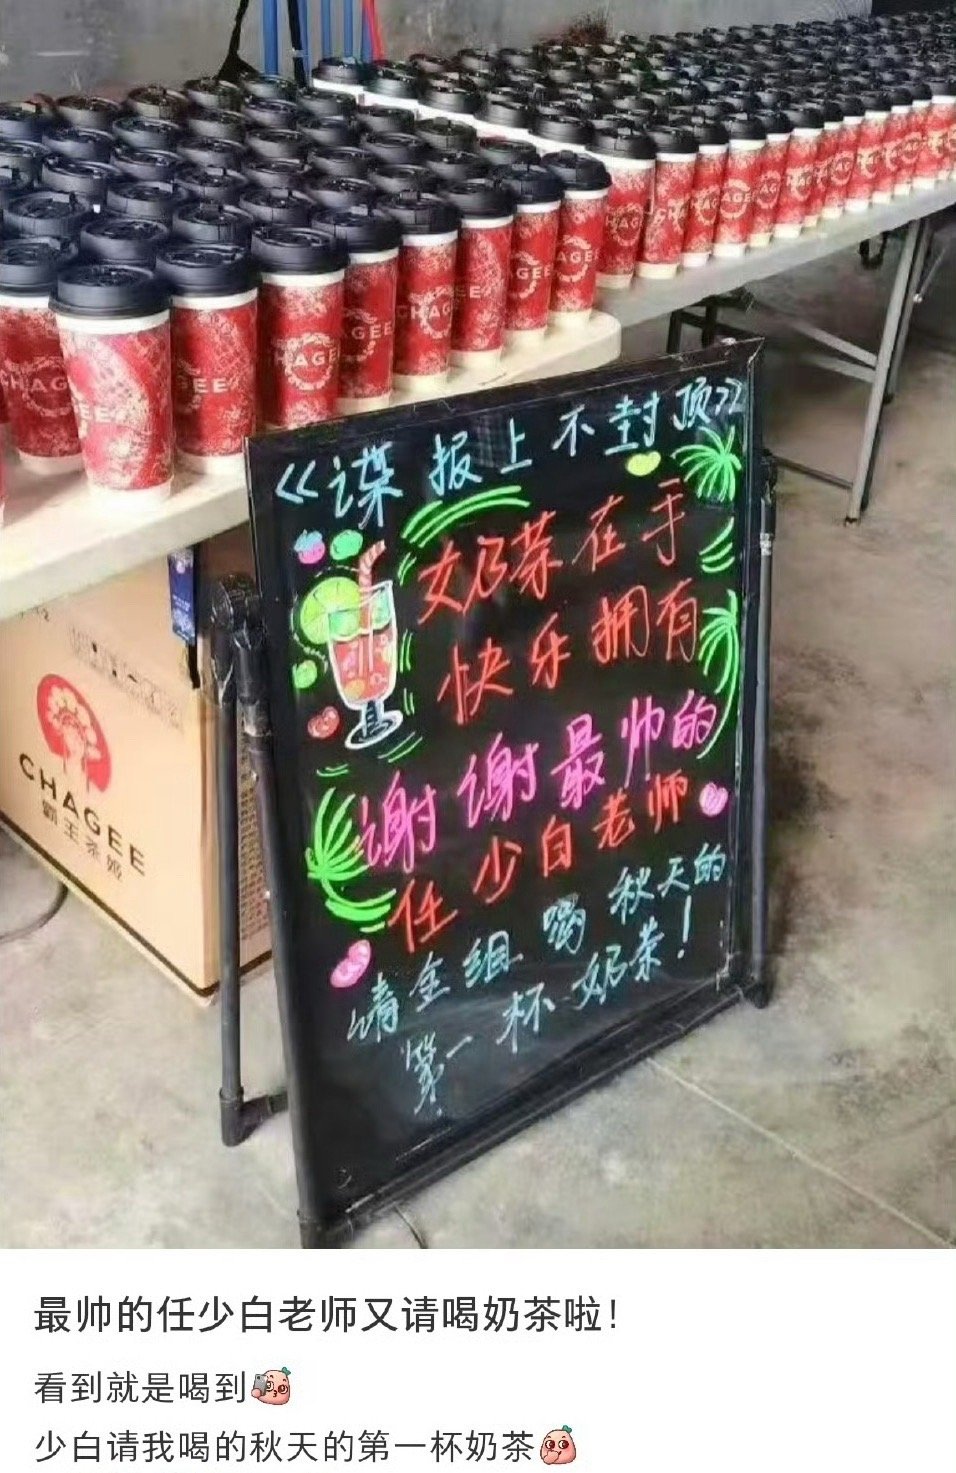 CHAGEE
CHAGEE
霸王茶姬
《谍报上不封顶》
奶茶在手
快乐拥有
谢谢最帅的
任少白老师
请全组喝秋天的
第一杯奶茶！
最帅的任少白老师又请喝奶茶啦！
看到就是喝到
少白请我喝的秋天的第一杯奶茶